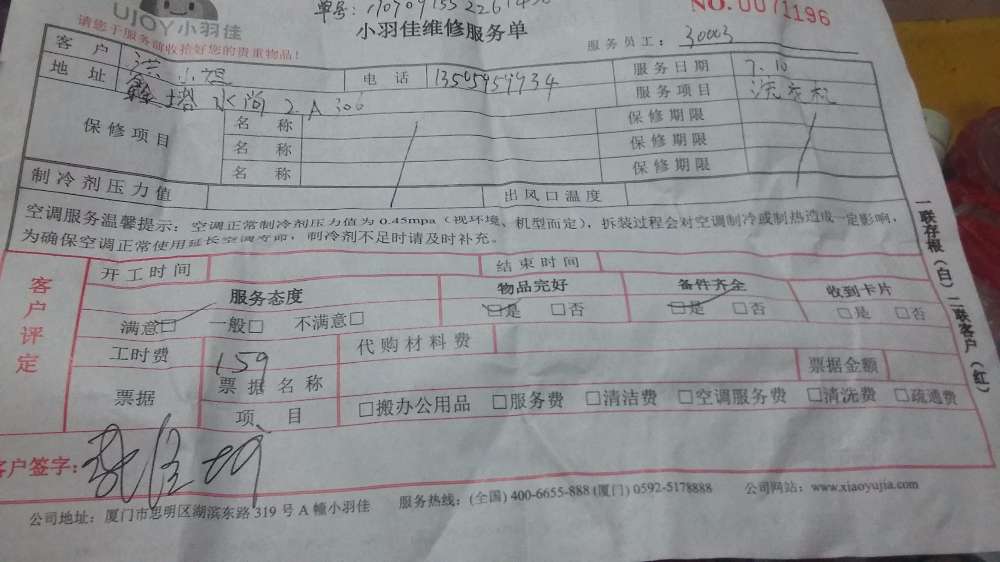 UJOY小羽佳
单号:
NO.0071196
请您于服务前收拾好您的贵重物品!
小羽佳维修服务单
服务员工: 30003
客户 电话 13505959934 服务日期 7.10
地址 2A306 服务项目 洗衣机
保修项目 名称 保修期限
名称 保修期限
名称 保修期限
制冷剂压力值 出风口温度
空调服务温馨提示:空调正常制冷剂压力值为0.45mpa(视环境、机型而定),拆装过程会对空调制冷或制热造成一定影响,
为确保空调正常使用延长空调寿命,制冷剂不足时请及时补充。
客户评定
开工时间 结束时间
服务态度 物品完好 备件齐全 收到卡片
满意□ 一般□ 不满意□ □是 □否 □是 □否 □是 □否
工时费 159 代购材料费
票据 票据名称 票据金额
项目 □搬办公用品 □服务费 □清洁费 □空调服务费 □清洗费 □疏通费
客户签字:
公司地址:厦门市思明区湖滨东路319号A幢小羽佳 服务热线:(全国)400-6655-888(厦门)0592-5178888 公司网站:www.xiaoyujia.com
一联存根(白)二联客户(红)